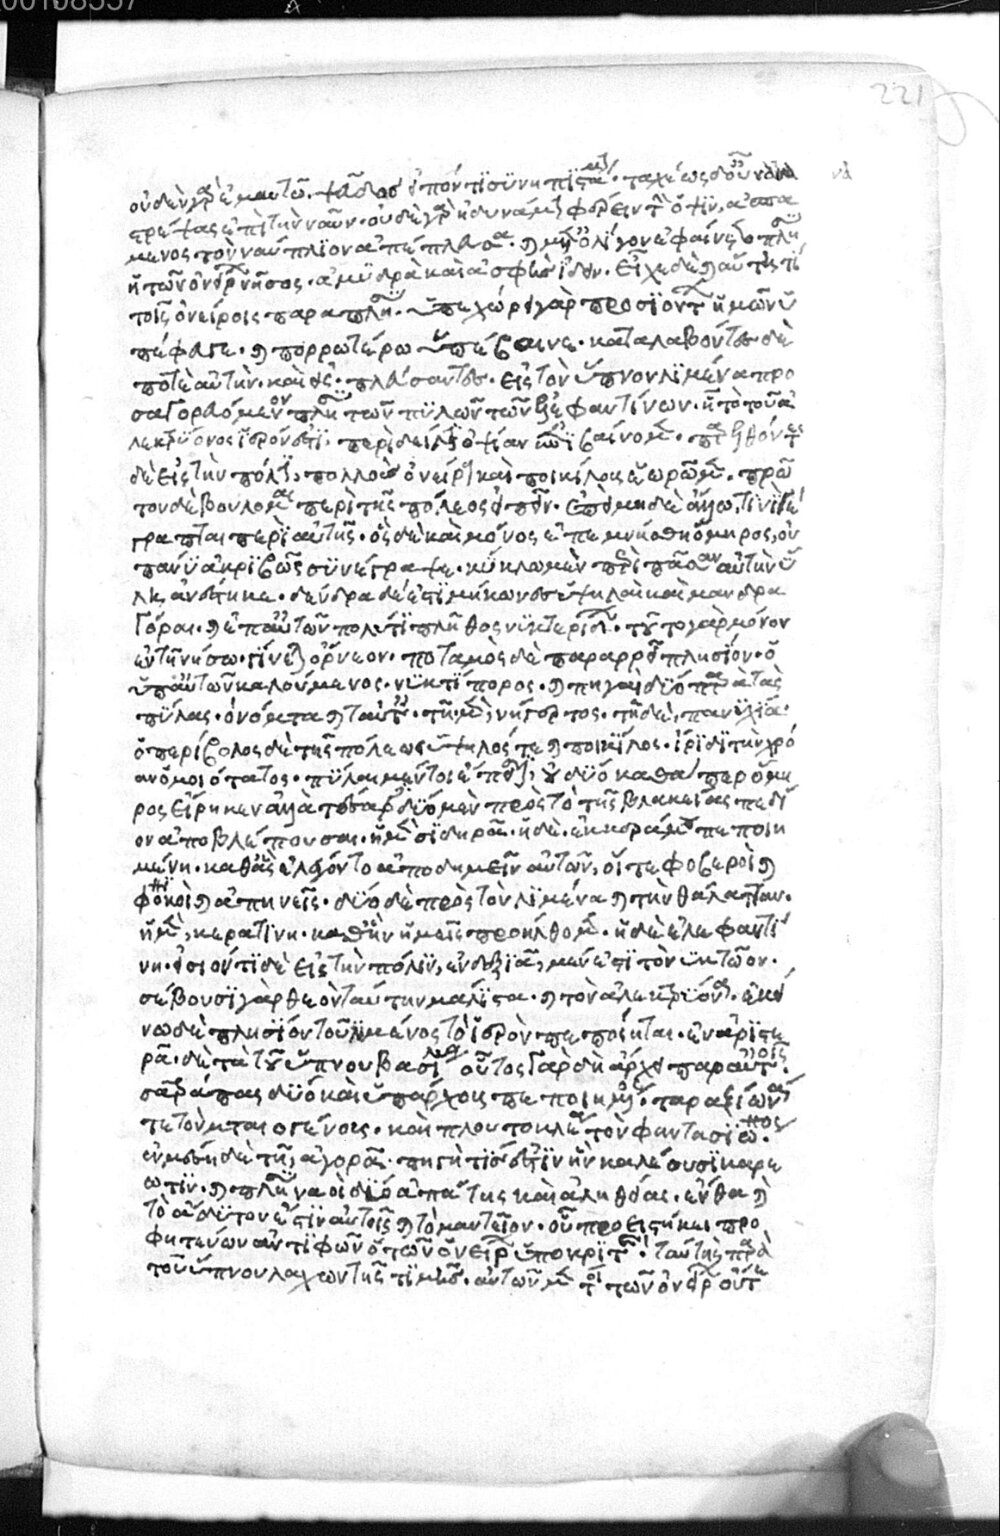 221
οὐδὲν γὰρ ἐμαυτῶ ψεῦδος εἰπόντι συνηπιστάμην· ταχέως δ' οὖν ἀνα
στρέψας ἐπὶ τὴν ναῦν· οὐδὲ γὰρ ἠδυνάμην φέρειν τὴν ὄψιν, ἀσπασά
μενος τὸν ναύπλιον ἀπέπλευσα· καὶ μετ' ὀλίγον ἐφαίνετο πλησίον
ἡ τῶν ὀνείρων νῆσος· ἀμυδρὰ καὶ ἀσαφὴς ἰδεῖν· εἶχε δὲ καὶ αὐτή τι
τοῖς ὀνείροις παραπλήσιον· ὑπεχώρει γὰρ προσϊόντων ἡμῶν καὶ ὑ
πέφευγε· καὶ πορρωτέρω ὑπέβαινε· καταλαβόντες δὲ
ποτὲ αὐτὴν· καὶ εἰσπλεύσαντες εἰς τὸν ὕπνον λϊμένα προ
σαγορευόμενον πλησίον τῶν πϋλῶν τῶν ἐλεφαντίνων· ἧ τὸ τοῦ ἀ
λεκτρϋόνος ἱερόν ἐστϊ, περὶ δείλην ὀψίαν ἀπεβαίνομεν· παρελθόντες
δὲ εἰς τὴν πόλϊν, πολλοὺς ὀνείρους καὶ ποικίλους ἑωρῶμεν· πρῶ
τον δὲ βούλομαι περὶ τῆς πόλεως εἰπεῖν· ἐπεὶ μηδὲ ἄλλω τινὶ γέ
γραπται περὶ αὐτῆς· ὃς δὲ καὶ μόνος ἐπεμνήσθη ὅμηρος, οὐ
πάνϋ ἀκρϊβῶς σϋνέγραψε· κύκλω μὲν περὶ πᾶσαν αὐτὴν ὕ
λη ἀνέστηκε· δένδρα δέ ἐστϊ μήκωνες ὑψηλαὶ καὶ μανδρα
γόραι· καὶ ἐπ' αὐτῶν πολύ τι πλῆθος νϋκτερίδων· τοῦτο γὰρ μόνον
ἐν τῆ νήσω γίνεται ὄρνεον· ποταμὸς δὲ παραρρεῖ πλησίον· ὁ
ὑπ' αὐτῶν καλούμενος· νϋκτϊπόρος· καὶ πηγαὶ δύο παρὰ τὰς
πύλας· ὀνόματα καὶ ταύταις· τῆ μὲν, νήγρετος· τῆ δὲ, παννϋχία·
ὁ περίβολος δὲ τῆς πόλεως ὑψηλός τε καὶ ποικίλος· ἴρϊδϊ τὴν χρό
αν ὁμοιότατος· πύλαι μέντοι ἔπεισιν, οὐ δύο καθάπερ ὅμη
ρος εἴρηκεν ἀλλὰ τέσσαρες δύο μὲν πρὸς τὸ τῆς βλακείας πεδί
ον ἀποβλέπουσαι· ἡ μὲν σϊδηρᾶ· ἡ δὲ ἐκ κεράμου πεποιη
μένη· καθ' ἃς ἐλέγοντο ἀποδημεῖν αὐτῶν, οἵ τε φοβεροὶ καὶ
φονικοὶ καὶ ἀπηνεῖς· δύο δὲ πρὸς τὸν λιμένα καὶ τὴν θάλατταν·
ἡ μὲν, κερατίνη· καθ' ἣν ἡμεῖς προήλθομεν· ἡ δὲ ἐλεφαντί
νη· εἰσιόντϊ δὲ εἰς τὴν πόλιν, ἐν δεξϊᾶ, μέν ἐστϊ τὸ νϋκτῶον·
σέβουσϊ γὰρ θεῶν ταύτην μάλϊστα· καὶ τὸν ἀλεκτρϋόνα· ἐκεί
νω δὲ πλησίον τοῦ λϊμένος τὸ ἱερὸν πεποίηται· ἐν ἀρϊστε
ρᾶ· δὲ τὰ τοῦ ὕπνου βασίλεια οὗτος γὰρ δὴ ἄρχει παρ' αὐτοῖς·
σατράπας δύο καὶ ὑπάρχους πεποιημένος· ταραξίωνά
τε τὸν ματαιογένους· καὶ πλουτοκλέα τὸν φαντασϊωνος·
ἐν μέση δὲ τῆ, ἀγορᾶ· πηγή τίς ἐστϊν ἣν καλέουσϊ καρε
ῶτϊν· καὶ πλησίον ναοὶ δύο ἀπάτης καὶ ἀληθείας· ἔνθα καὶ
τὸ ἄδυτόν ἐστϊν αὐτοῖς καὶ τὸ μαντεῖον· οὗ προειστήκει προ
φητεύων ἀντϊφῶν ὁ τῶν ὀνείρων ὑποκρϊτής· ταύτης παρὰ
τοῦ ὕπνου λαχὼν τῆς τϊμῆς· αὐτῶν μέντοι τῶν ὀνείρων οὔτε